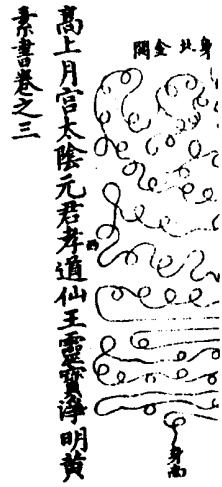 身北 金闕
西
身南
高上月宮太陰元君孝道仙王靈寶淨明黄
素書卷之三